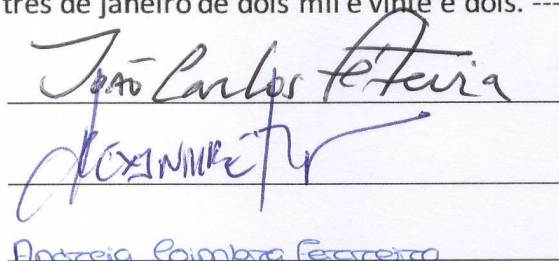 três de janeiro de dois mil e vinte e dois. ---
João Carlos Teteria
Andreia Coimbra Ferreira